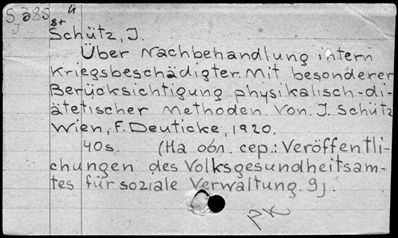 Schütz, J.
Über Nachbehandlung intern
Kriegsbeschädigter. Mit besonderer
Berücksichtigung physikalisch-di-
ätetischer Methoden. Von J. Schütz
Wien, F. Deuticke, 1920.
40s. (На обл. сер.: Veröffentli-
chungen des Volksgesundheitsam-
tes für soziale Verwaltung. 9).